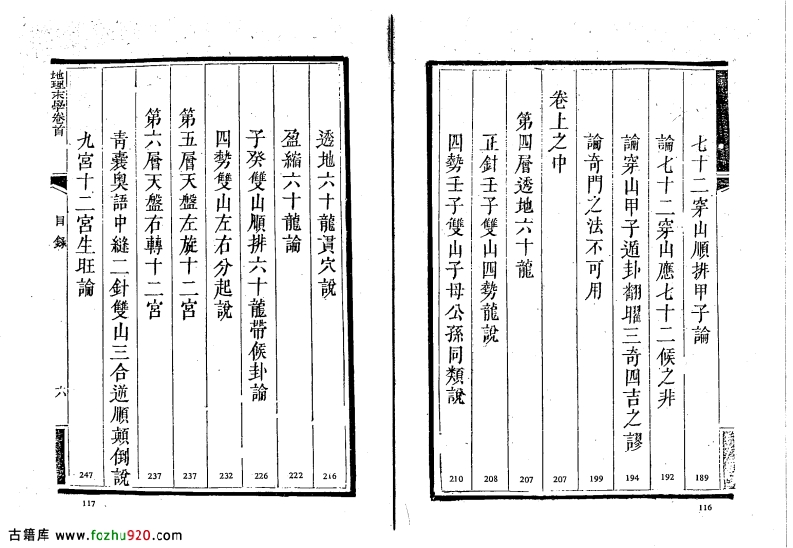 七十二穿山順排甲子論 189
論七十二穿山應七十二候之非 192
論穿山甲子遁卦翻曜三奇四吉之謬 194
論奇門之法不可用 199
卷上之中 207
第四層透地六十龍 207
正針壬子雙山四勢龍說 208
四勢壬子雙山子母公孫同類說 210
116
透地六十龍貫穴說 216
盈縮六十龍論 222
子癸雙山順排六十龍帶候卦論 226
四勢雙山左右分起說 232
第五層天盤左旋十二宮 237
第六層天盤右轉十二宮 237
青囊奧語中縫二針雙山三合逆順顛倒說
九宮十二宮生旺論 247
地理末學卷首
目錄
六
117
古籍库 www.fozhu920.com